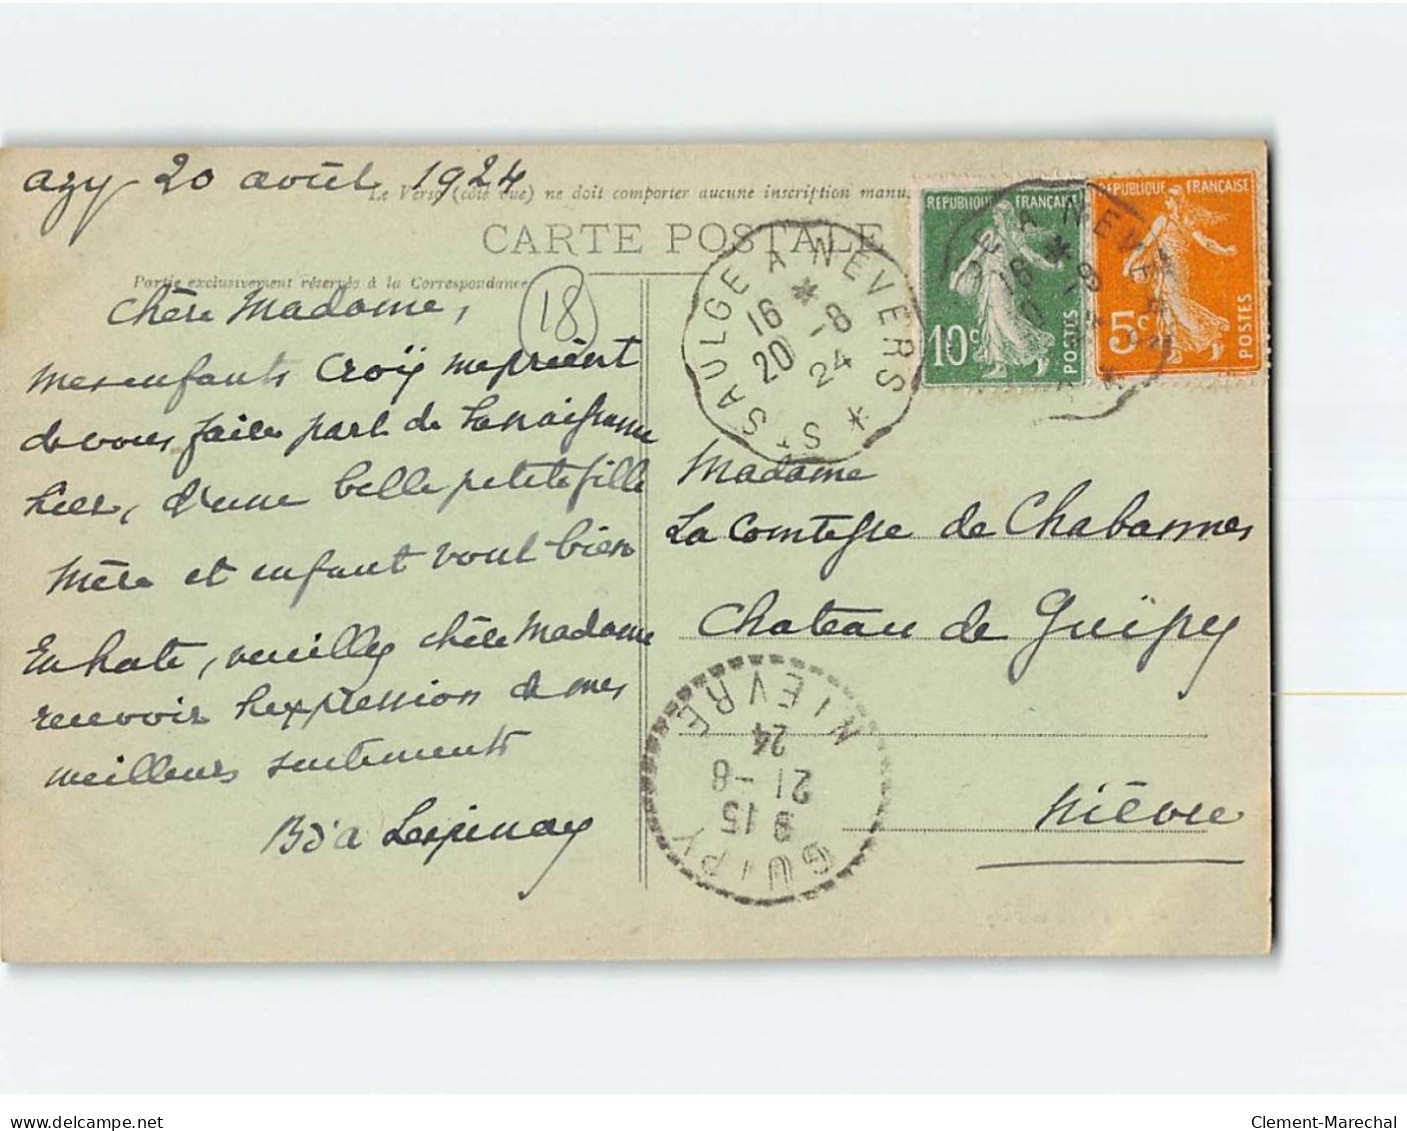 azy 20 août 1924
Le Verso (côté vue) ne doit comporter aucune inscription manu.
CARTE POSTALE
Partie exclusivement réservée à la Correspondance
18
chère Madame,
mes enfants Croÿ me prient
de vous faire part de la naissance
hier, d'une belle petite fille
Mère et enfant vont bien
En hate, veuillez chère Madame
recevoir l'expression de mes
meilleurs sentiments
Bd'a Lespinay
Madame
La Comtesse de Chabannes
Chateau de Guipy
Nièvre
ST SAULGE A NEVERS
16 * -8
20 24
RÉPUBLIQUE FRANÇAISE
10c POSTES
RÉPUBLIQUE FRANÇAISE
5c POSTES
GE A NEVE
16 * -8
GUIPY NIEVRE
8 15
21 -8
24
delcampe.net
Clement-Marechal